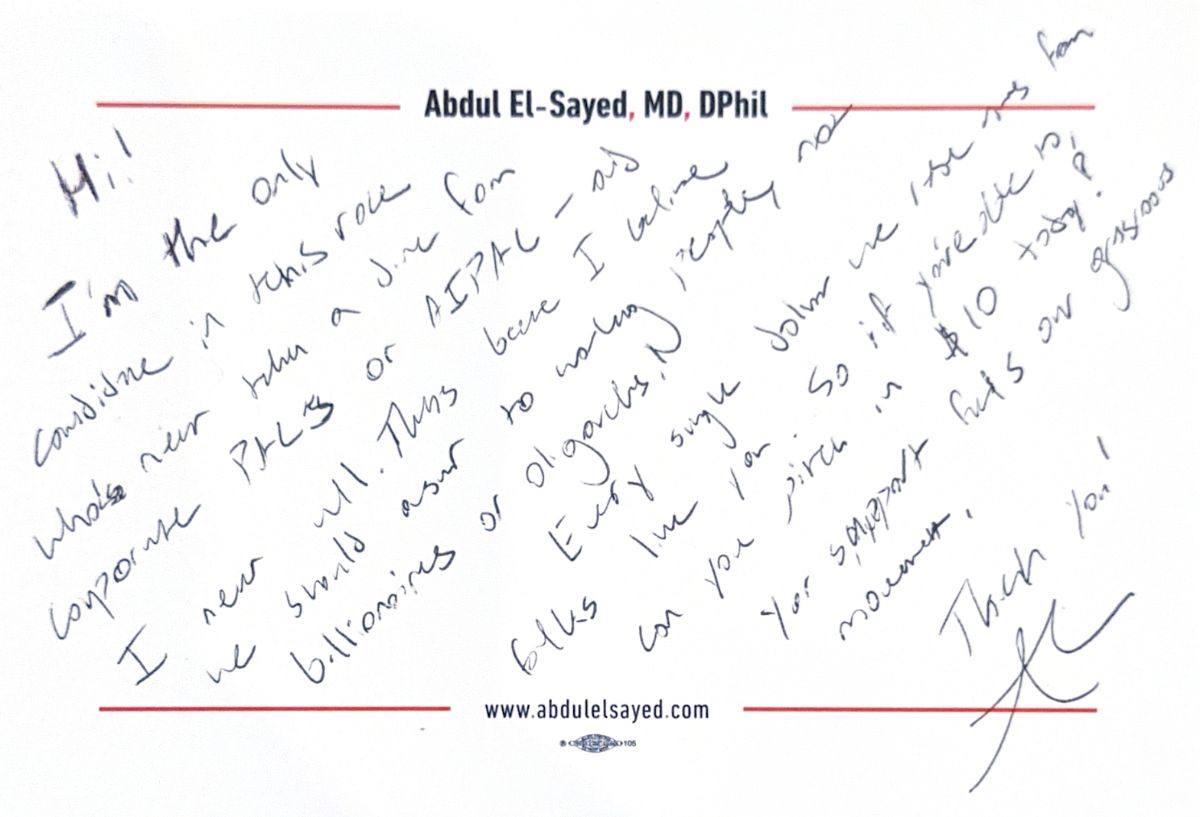 Abdul El-Sayed, MD, DPhil
Hi!
I'm the only
candidate in this race
who's never taken a dime from
corporate PACs or AIPAC - and
I never will. That's because I believe
we should answer to working people, not
billionaires or oligarchs.
Every single dollar we raise comes from
folks like you. So if you're able to,
can you pitch in $10 today?
Your support fuels our grassroots
movement.
Thank you!
www.abdulelsayed.com
105